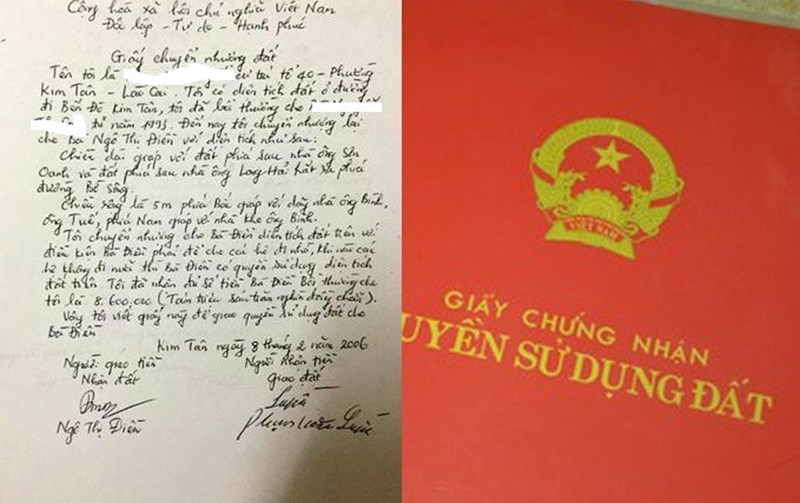 Cộng hoà xã hội chủ nghĩa Việt Nam
Độc lập - Tự do - Hạnh phúc
Giấy chuyển nhượng đất
Tên tôi là cư trú tổ 40 - Phường
Kim Tân - Lào Cai. Tôi có diện tích đất ở đường
đi Bến Đá Kim Tân, tôi đã bồi thường cho
từ năm 1993. Đến nay tôi chuyển nhượng lại
cho Bà Ngô Thị Điền với diện tích như sau:
Chiều dài giáp với đất phía sau nhà ông Sơn
Oanh và đất phía sau nhà ông Long Hải hất ra phía
đường Bờ Sông.
Chiều rộng là 5m phía Bắc giáp với nhà ông Bình,
ông Tuế, phía Nam giáp với nhà kho ông Bình.
Tôi chuyển nhượng cho Bà Điền diện tích đất trên với
điều kiện Bà Điền phải để cho các hộ đi nhờ, khi nào các
hộ không đi nữa thì Bà Điền có quyền sử dụng diện tích
đất trên. Tôi đã nhận đủ số tiền Bà Điền Bồi thường cho
tôi là 8.600.000 (Tám triệu sáu trăm nghìn đồng chẵn).
Vậy tôi viết giấy này để giao quyền sử dụng đất cho
Bà Điền
Kim Tân ngày 8 tháng 2 năm 2006
Người giao tiền Người nhận tiền
Nhận đất Giao đất
Ngô Thị Điền
VIỆT NAM
GIẤY CHỨNG NHẬN
UYỀN SỬ DỤNG ĐẤT